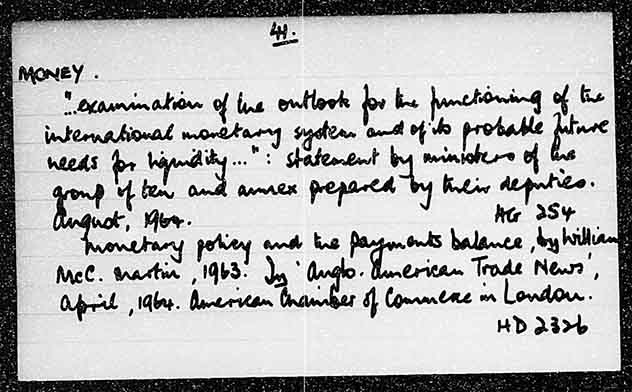 41.
MONEY.
"...examination of the outlook for the functioning of the
international monetary system and of its probable future
needs for liquidity...": statement by ministers of the
group of ten and annex prepared by their deputies.
August, 1964.
HG 254
Monetary policy and the payments balance, by William
McC. Martin, 1963. In 'Anglo-American Trade News',
April, 1964. American Chamber of Commerce in London.
HD 2326